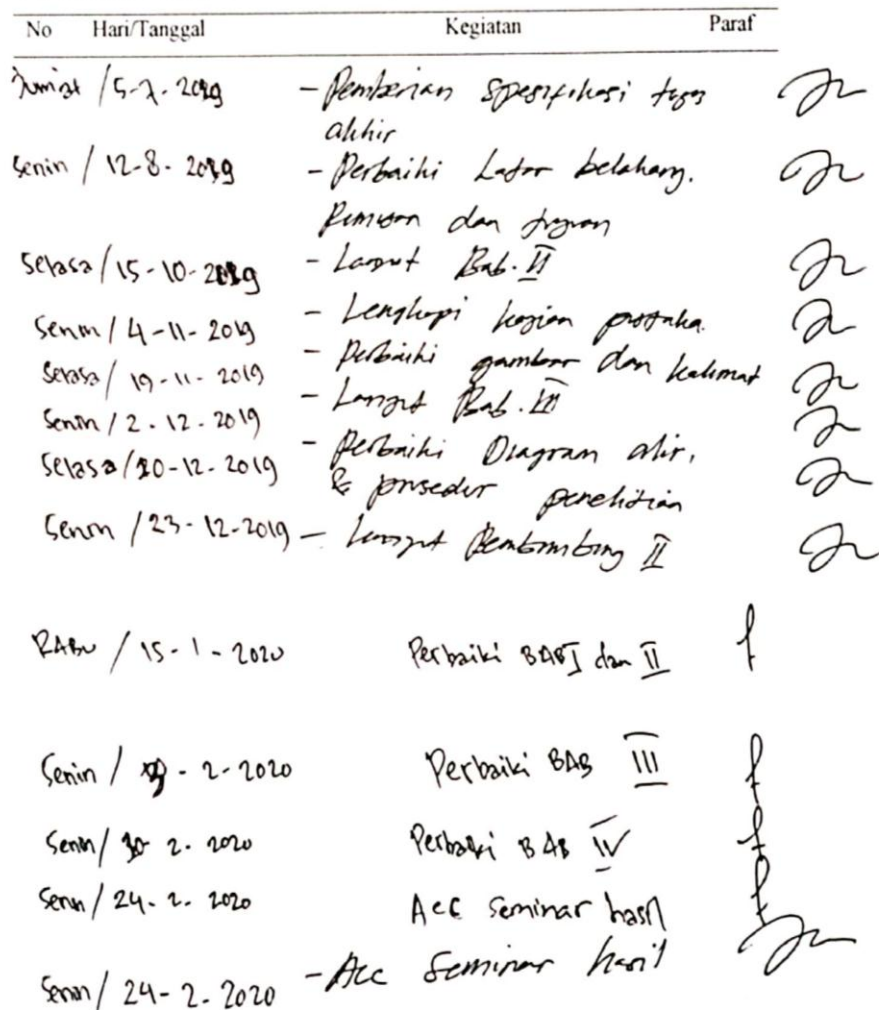 No Hari/Tanggal Kegiatan Paraf
Jum'at / 5-7-2019 - Pemberian Spesifikasi tugas
akhir
Senin / 12-8-2019 - Perbaiki Latar belakang.
Rumusan dan tujuan
Selasa / 15-10-2019 - Lanjut Bab. II
Senin / 4-11-2019 - Lengkapi kajian pustaka.
Selasa / 19-11-2019 - Perbaiki gambar dan kalimat
Senin / 2-12-2019 - Lanjut Bab. III
Selasa / 10-12-2019 - Perbaiki Diagram alir,
& prosedur penelitian
Senin / 23-12-2019 - Lanjut Pembimbing II
RABU / 15-1-2020 Perbaiki BAB I dan II
Senin / - 2-2020 Perbaiki BAB III
Senin / 2-2020 Perbaiki BAB IV
Senin / 24-2-2020 Acc Seminar hasil
Senin / 24-2-2020 - Acc Seminar hasil